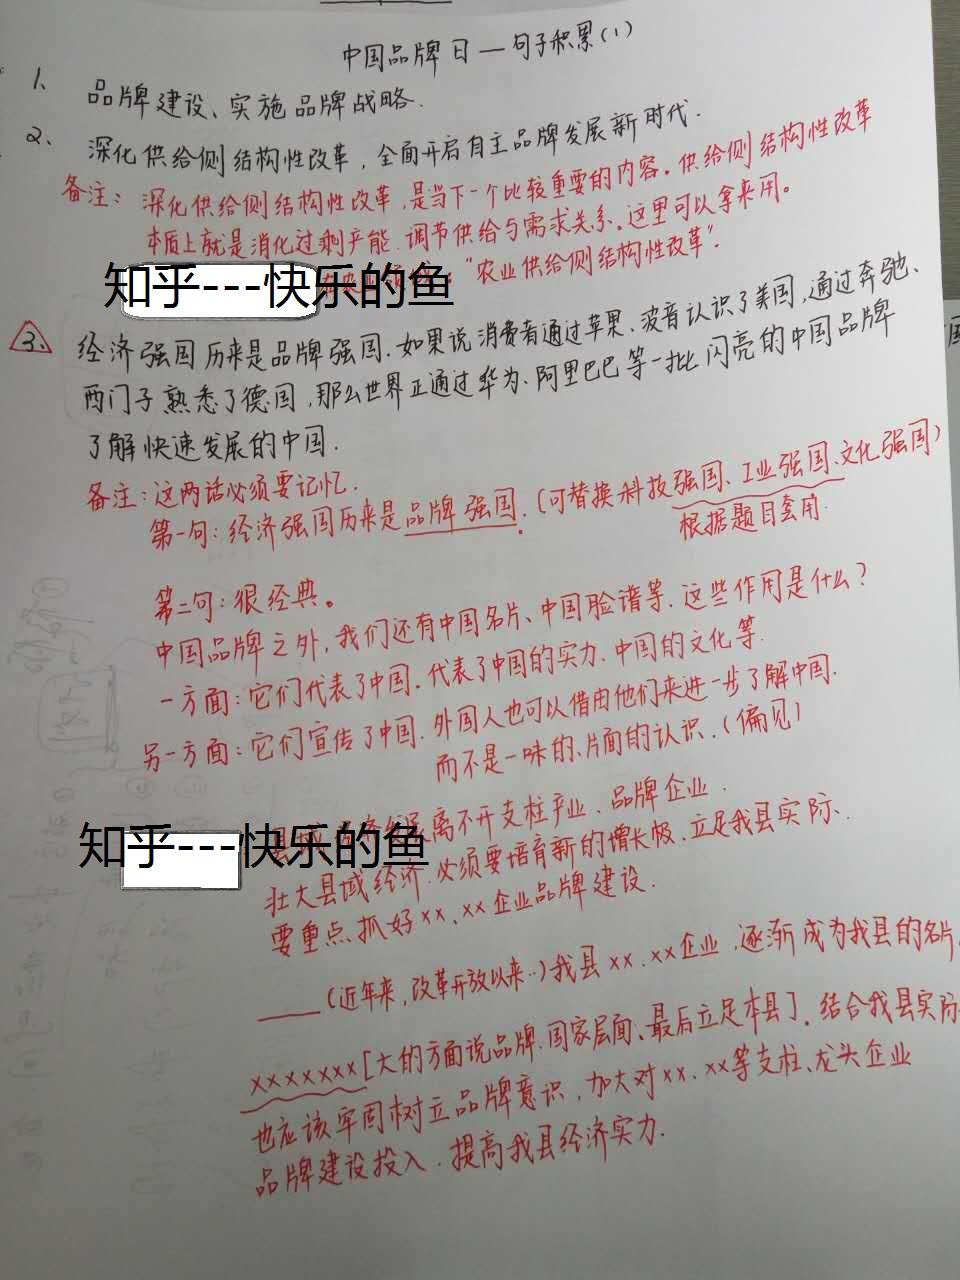 中国品牌日—句子积累(1)
1、品牌建设、实施品牌战略.
2、深化供给侧结构性改革,全面开启自主品牌发展新时代.
备注:深化供给侧结构性改革,是当下一个比较重要的内容。供给侧结构性改革
本质上就是消化过剩产能.调节供给与需求关系。这里可以拿来用。
知乎---快乐的鱼
:“农业供给侧结构性改革”.
3、经济强国历来是品牌强国.如果说消费者通过苹果、波音认识了美国,通过奔驰、
西门子熟悉了德国,那么世界正通过华为、阿里巴巴等一批闪亮的中国品牌
了解快速发展的中国.
备注:这两话必须要记忆.
第一句:经济强国历来是品牌强国.(可替换科技强国、工业强国、文化强国)
根据题目套用.
第二句:很经典。
中国品牌之外,我们还有中国名片、中国脸谱等.这些作用是什么?
一方面:它们代表了中国.代表了中国的实力.中国的文化等.
另一方面:它们宣传了中国.外国人也可以借由他们来进一步了解中国.
而不是一味的、片面的认识.(偏见)
离不开支柱产业、品牌企业.
知乎---快乐的鱼
壮大县域经济.必须要培育新的增长极.立足我县实际.
要重点抓好xx、xx企业品牌建设.
(近年来,改革开放以来..)我县xx.xx企业,逐渐成为我县的名片.
xxxxxxx[大的方面说品牌.国家层面、最后立足本县].结合我县实际
也应该牢固树立品牌意识,加大对xx.xx等支柱、龙头企业
品牌建设投入.提高我县经济实力.